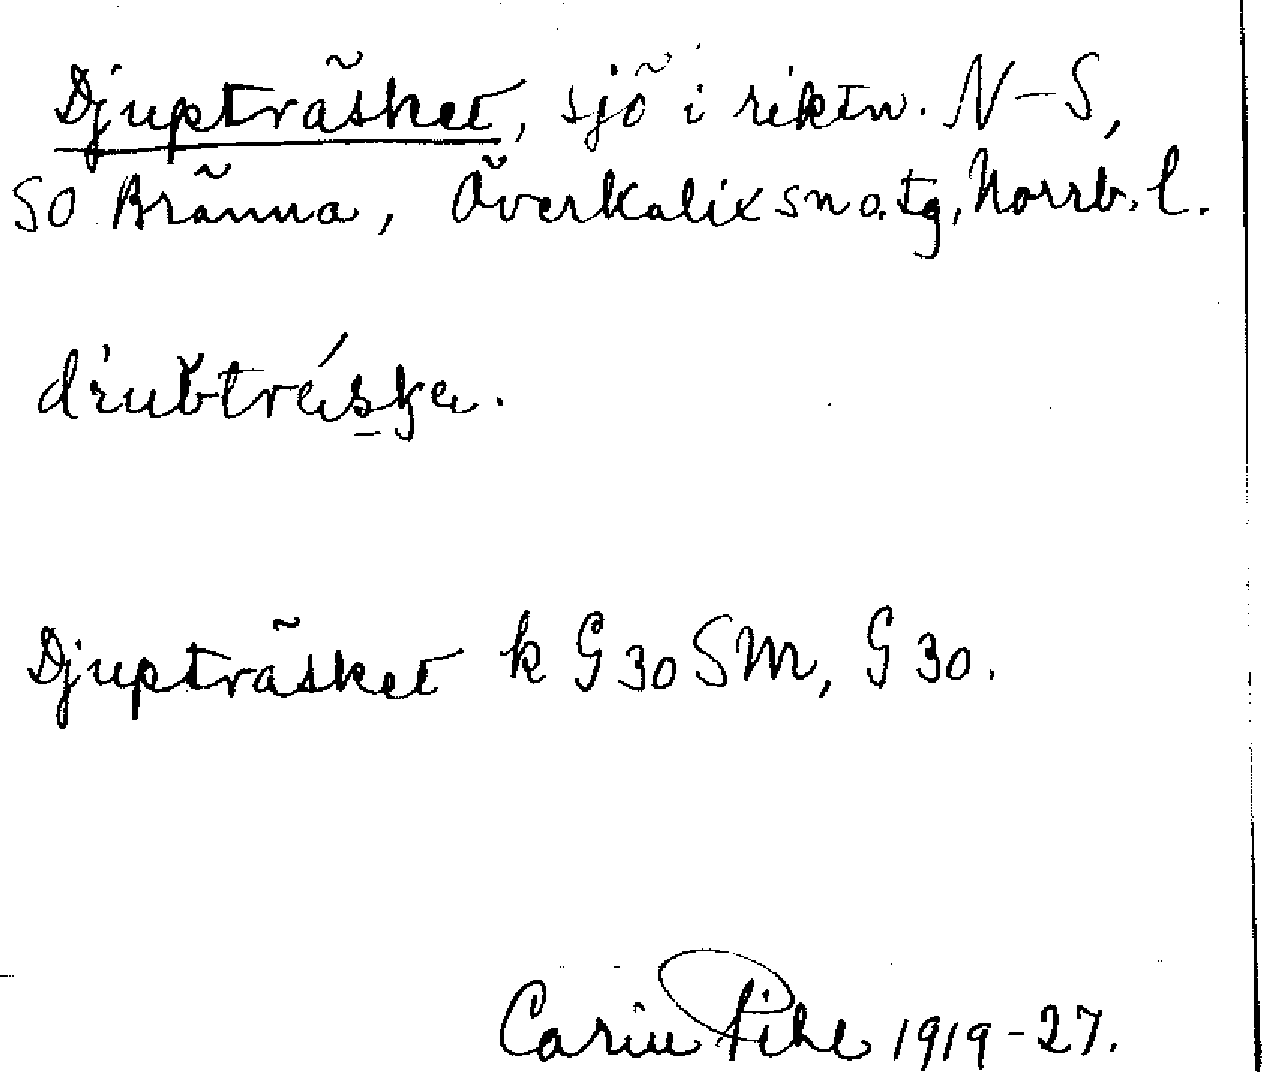 Djupträsket, sjö i riktn. N-S,
SO Bränna, Överkalix sn o. tg, Norrb. l.
Djupträsket k G 30 SM, G 30.
Carin Pihl 1919-27.